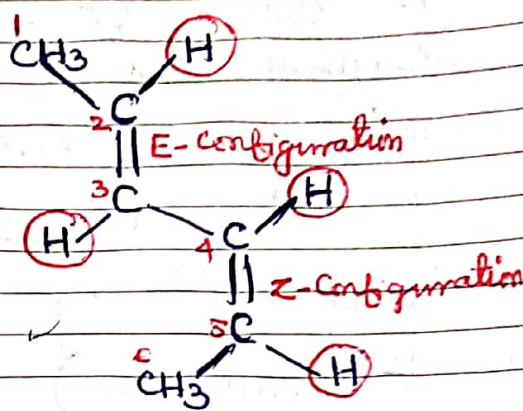 1
CH3 H
2 C
E-Configuration
3 C H
H 4 C
Z-Configuration
5 C
CH3 H